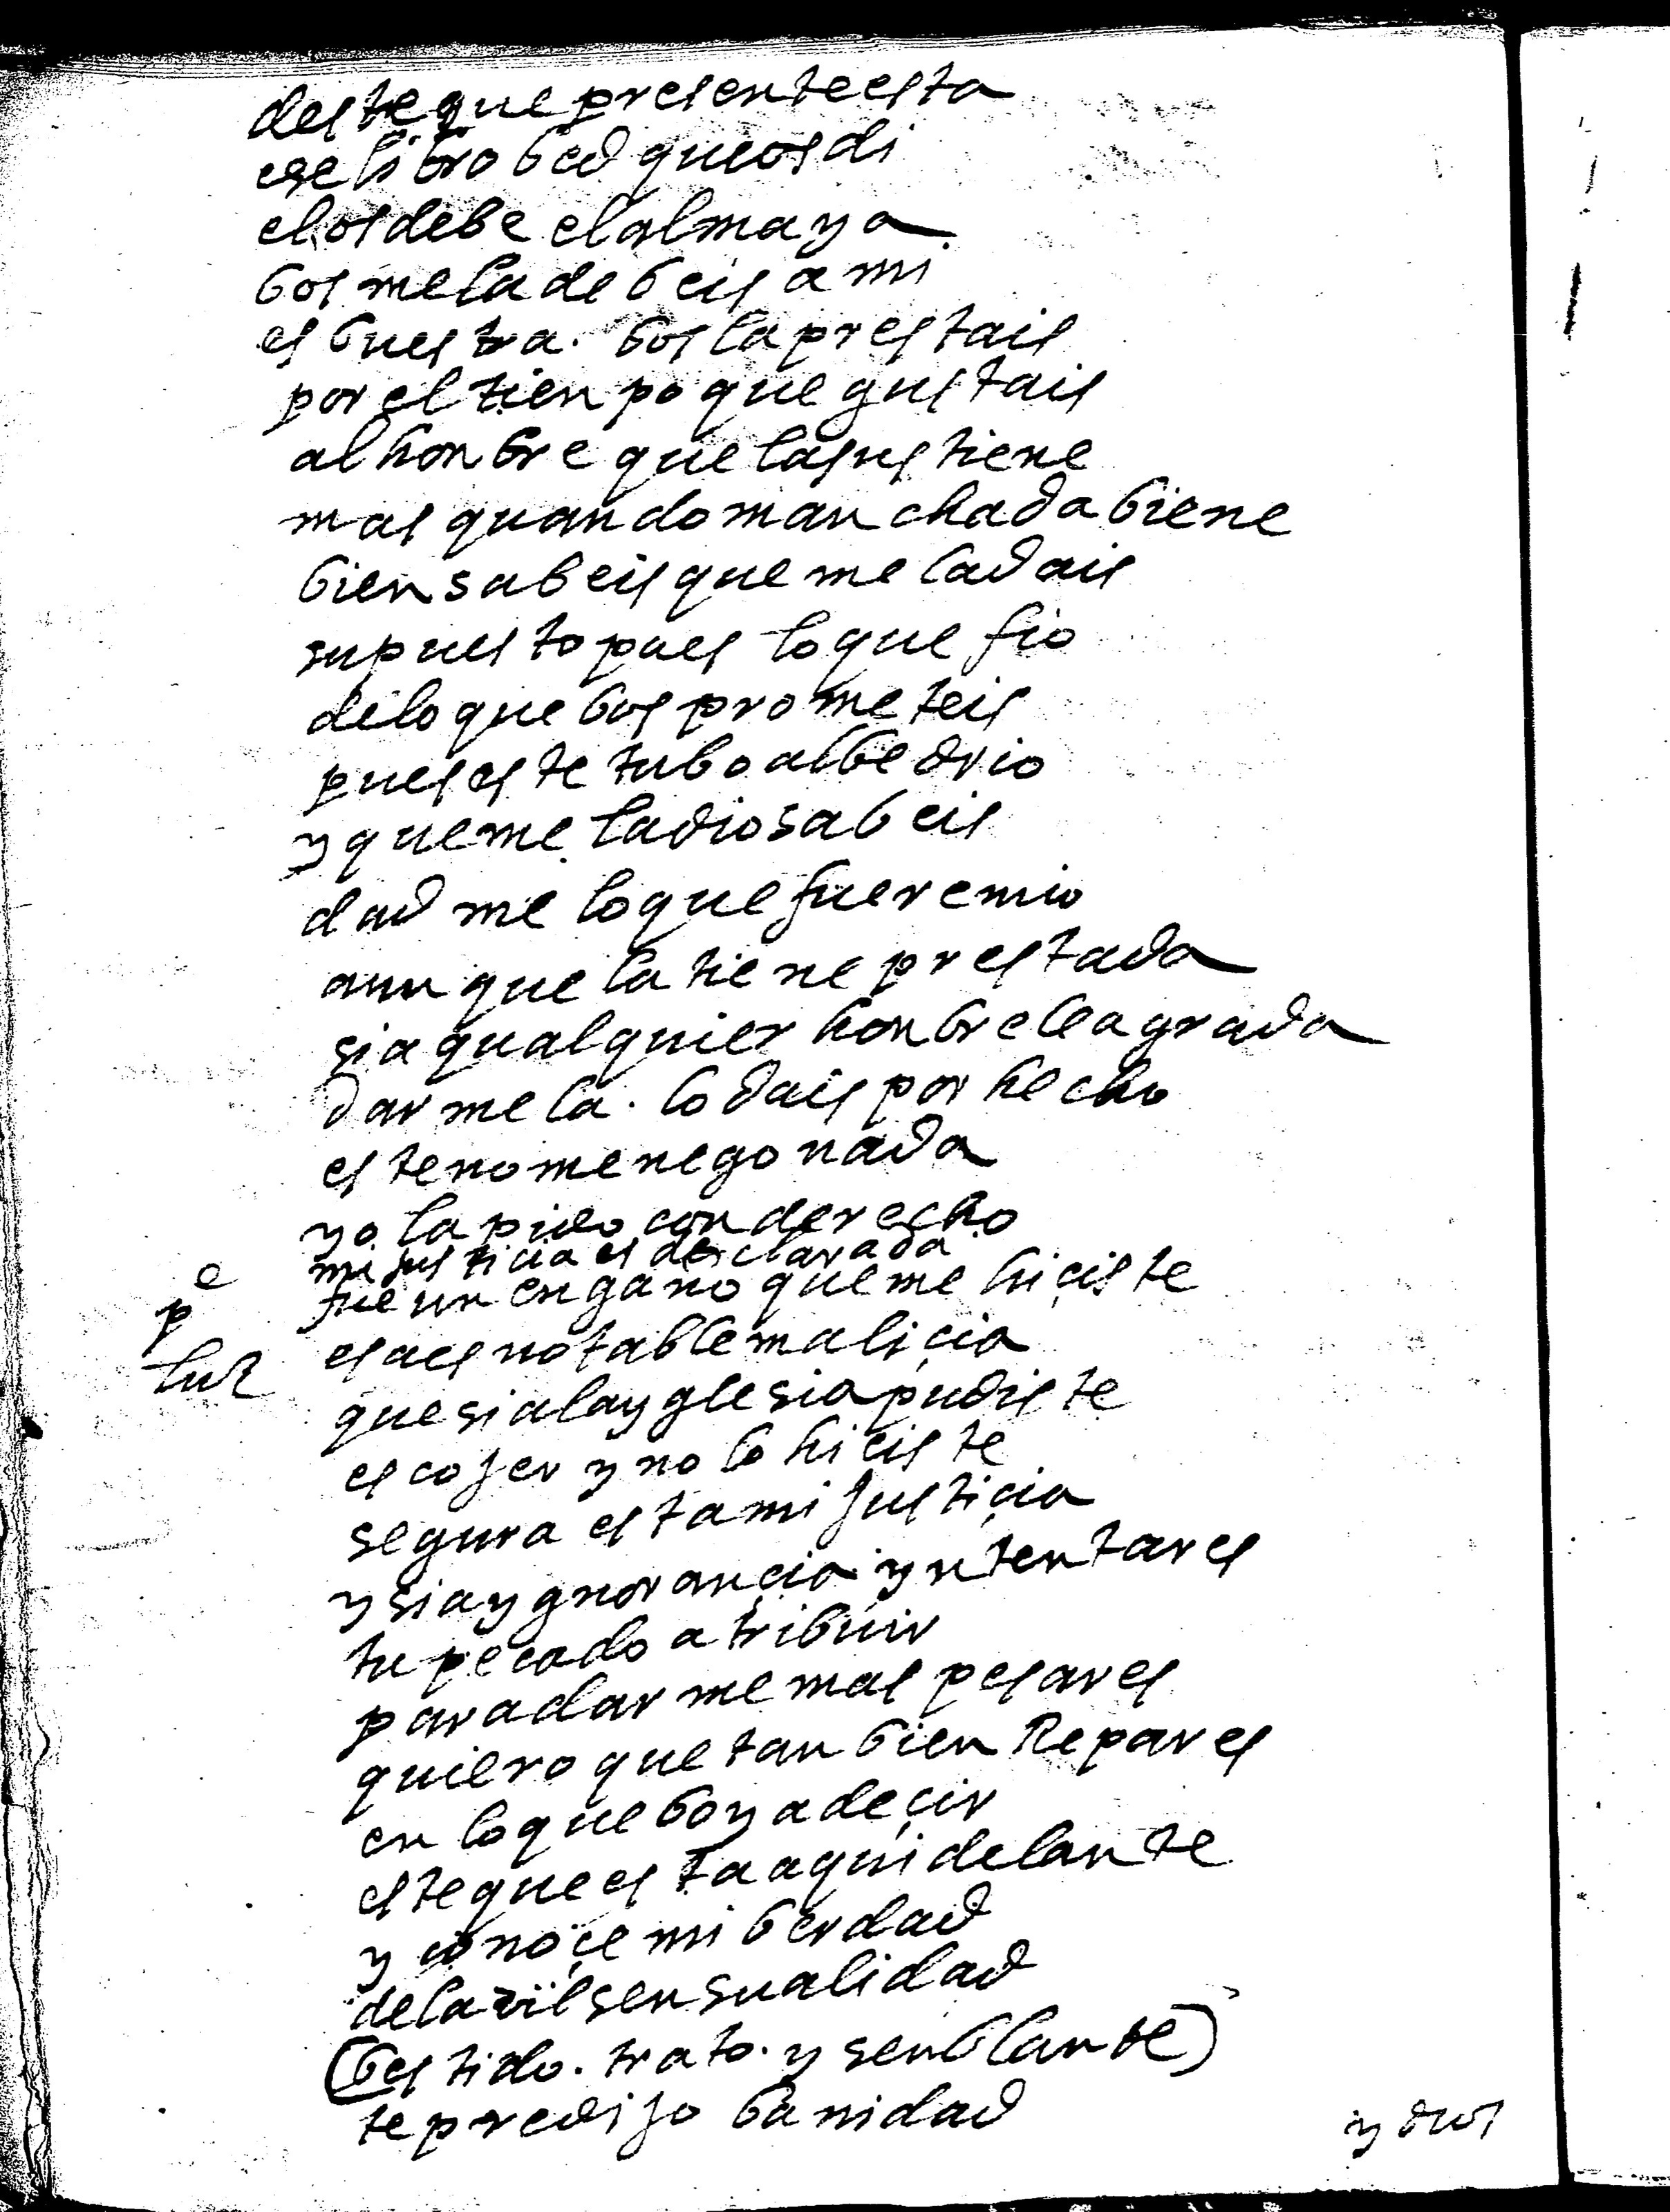 deste que presente esta
ese libro bed que os di
el os debe el alma ya
bos me la debeis a mi
es buestra. bos la prestais
por el tienpo que gustais
al honbre que la sustiene
mas quando manchada biene
bien sabeis que me la dais
supuesto pues lo que fio
de lo que bos prometeis
pues este tubo albedrio
y que me la dio sabeis
dad me lo que fuere mio
aunque la tiene prestada
si a qualquier honbre le agrada
darmela. lo dais por hecho
este no me nego nada
yo la pido con derecho
mi justicia es declarada
pe fue un engano que me hiçiste
luz esa es notable maliçia
que si a la yglesia pudiste
escojer y no lo hiciste
segura esta mi justiçia
y si a ygnorançia yntentares
tu pecado atribuir
para darme mas pesares
quiero que tanbien Repares
en lo que boy a deçir
este que esta aqui delante
y conoçe mi berdad
de la vil sensualidad
(bestido. trato. y senblante)
te predijo banidad
y dios